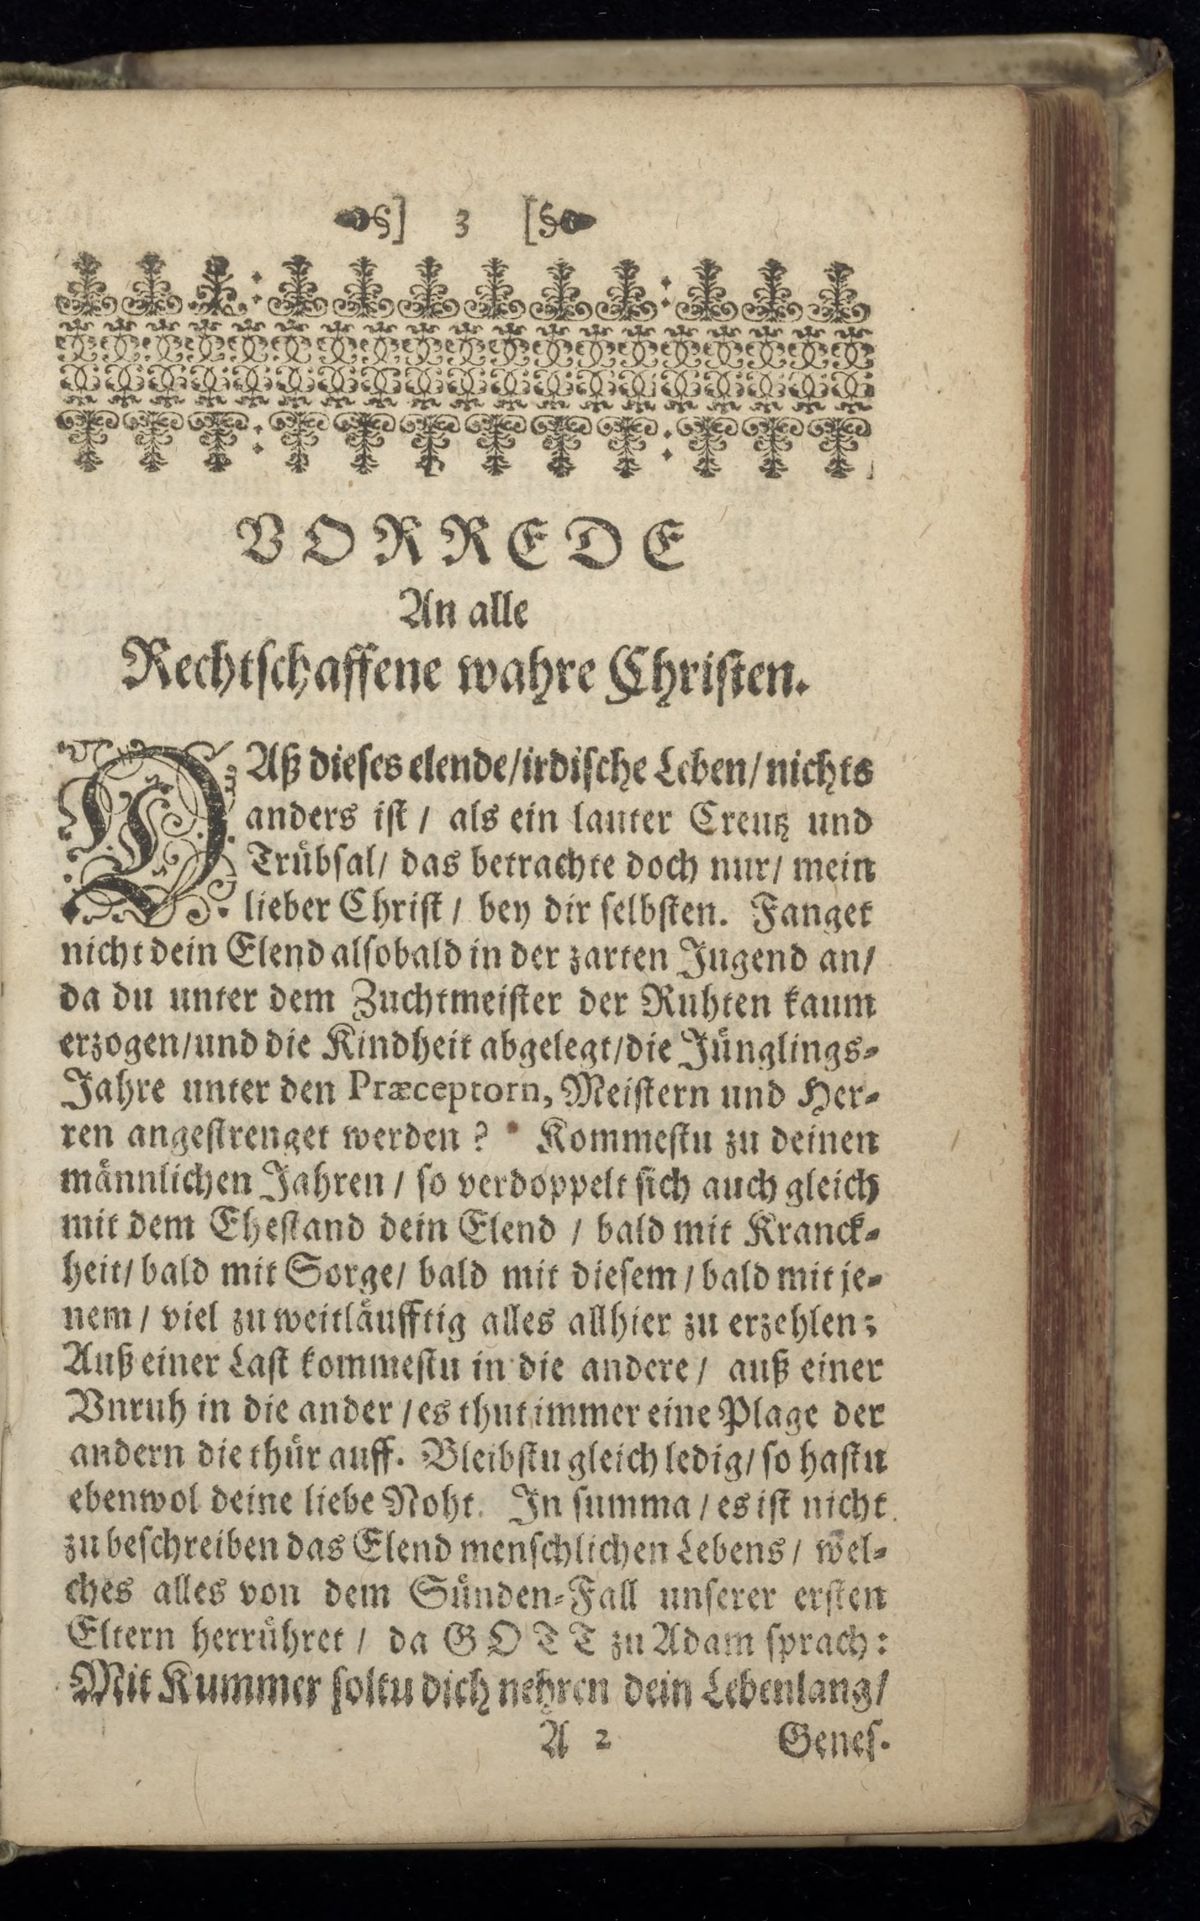 §] 3 [§
VORREDE
An alle
Rechtschaffene wahre Christen.
DAß dieses elende/irdische Leben/nichts
anders ist / als ein lauter Creutz und
Trübsal/ das betrachte doch nur/ mein
lieber Christ / bey dir selbsten. Fanget
nicht dein Elend alsobald in der zarten Jugend an/
da du unter dem Zuchtmeister der Ruhten kaum
erzogen/und die Kindheit abgelegt/die Jünglings-
Jahre unter den Præceptorn, Meistern und Her-
ren angestrenget werden ? Kommestu zu deinen
männlichen Jahren / so verdoppelt sich auch gleich
mit dem Ehestand dein Elend / bald mit Kranck-
heit/ bald mit Sorge/ bald mit diesem / bald mit je-
nem / viel zu weitläufftig alles allhier zu erzehlen;
Auß einer Last kommestu in die andere / auß einer
Vnruh in die ander / es thut immer eine Plage der
andern die thür auff. Bleibstu gleich ledig/ so hastu
ebenwol deine liebe Noht. In summa / es ist nicht
zu beschreiben das Elend menschlichen Lebens / wel-
ches alles von dem Sünden-Fall unserer ersten
Eltern herrühret / da GOTT zu Adam sprach:
Mit Kummer soltu dich nehren dein Lebenlang/
A 2 Genes.